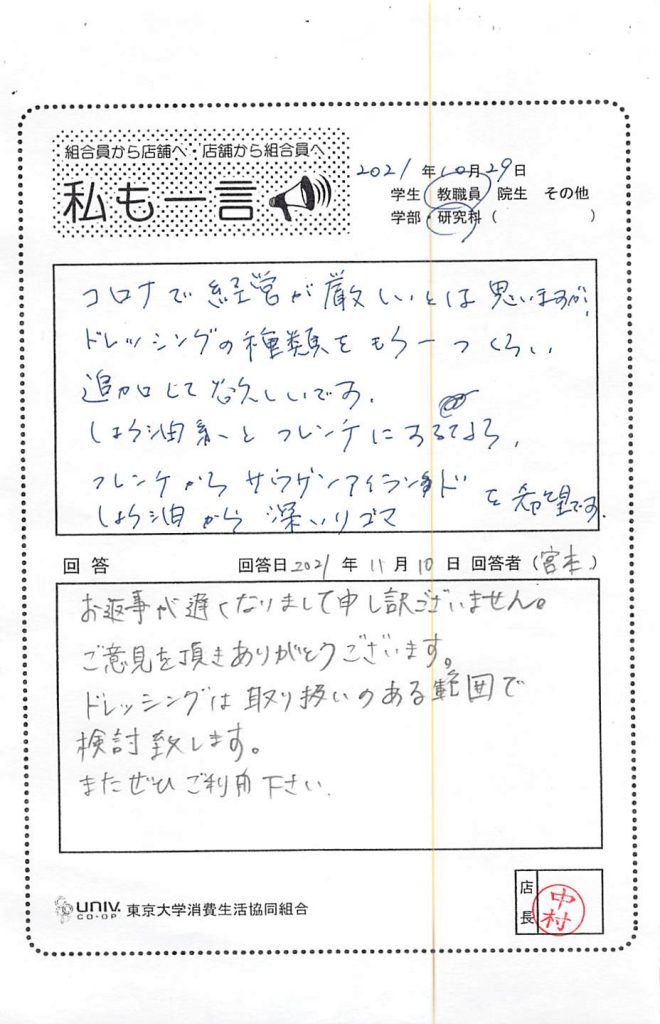 組合員から店舗へ・店舗から組合員へ
私も一言
2021年10月29日
学生 教職員 院生 その他
学部・研究科( )
コロナで経営が厳しいとは思いますが、
ドレッシングの種類をもう一つくらい
追加して欲しいです。
しょう油系と フレンチに
フレンチから サウザンアイランド
しょう油から 深いりゴマ を希望です。
回答 回答日2021年11月10日 回答者(宮本)
お返事が遅くなりまして申し訳ございません。
ご意見を頂きありがとうございます。
ドレッシングは取り扱いのある範囲で
検討致します。
またぜひご利用下さい.
UNIV. CO-OP 東京大学消費生活協同組合
店長 中村